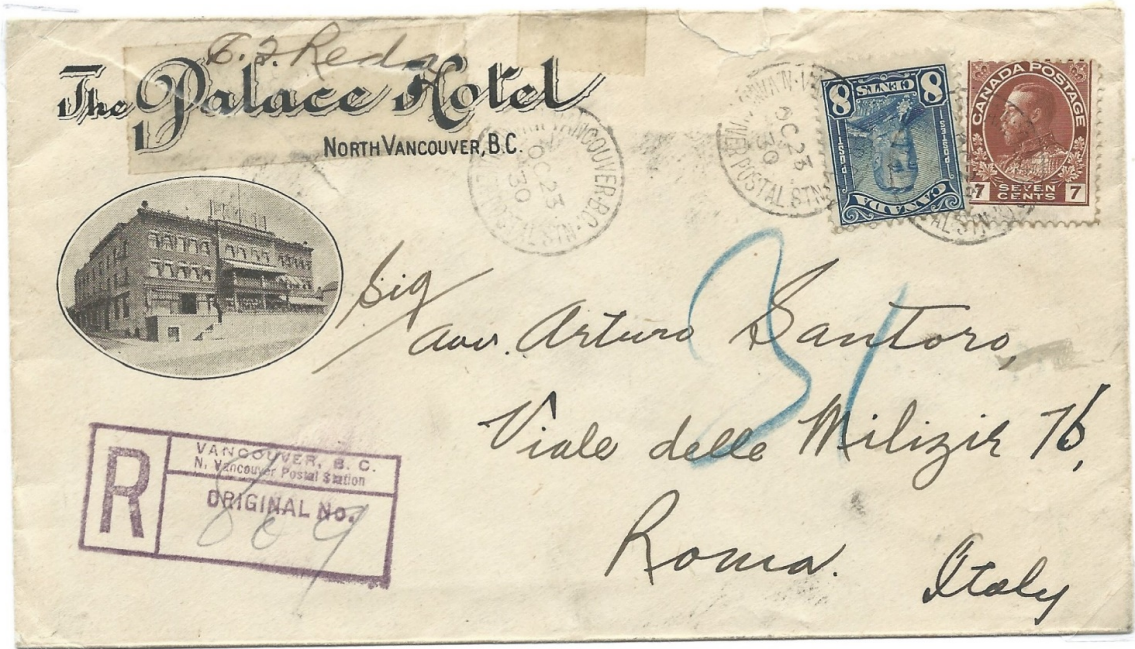 The Palace Hotel
NORTH VANCOUVER, B.C.
VANCOUVER-B.C.
OC 23
30
OC 23
30
POSTAL STN
8 CENTS 8
POSTES POST
CANADA
CANADA POSTAGE
7 SEVEN 7
CENTS
Sig
avv. Arturo Santoro,
Viale delle Milizie 76,
Roma.
Italy
31
R
VANCOUVER, B. C.
N. Vancouver Postal Station
ORIGINAL No.
809